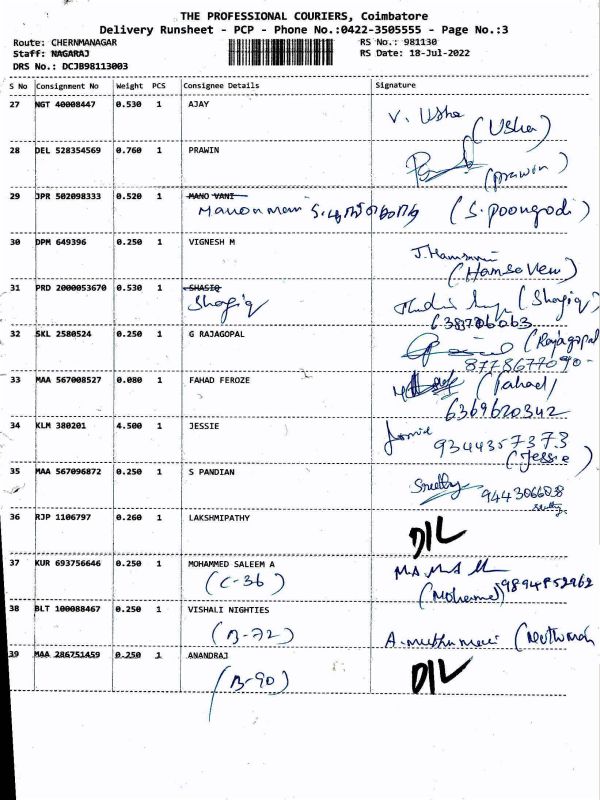 THE PROFESSIONAL COURIERS, Coimbatore
Delivery Runsheet - PCP - Phone No.:0422-3505555 - Page No.:3
Route: CHERNMANAGAR RS No.: 981130
Staff: NAGARAJ RS Date: 18-Jul-2022
DRS No.: DCJB98113003
S No Consignment No Weight PCS Consignee Details Signature
27 NGT 40008447 0.530 1 AJAY V. Usha (Usha)
28 DEL 528354569 0.760 1 PRAWIN (prawin)
29 JPR 502098333 0.520 1 MANO VANI
Manonmani (S. Poongodi)
30 DPM 649396 0.250 1 VIGNESH M
31 PRD 2000053670 0.530 1 SHASIQ
Shafiq (Shafiq)
32 SKL 2580524 0.250 1 G RAJAGOPAL (Rajagopal
8778677090
33 MAA 567008527 0.080 1 FAHAD FEROZE (Fahad)
6369620342
34 KLM 380201 4.500 1 JESSIE
9344357373
(Jessie)
35 MAA 567096872 0.250 1 S PANDIAN
36 RJP 1106797 0.260 1 LAKSHMIPATHY D/L
37 KUR 693756646 0.250 1 MOHAMMED SALEEM A
(C-36) (Mohamed)
38 BLT 100088467 0.250 1 VISHALI NIGHTIES
(B-72)
39 MAA 286751459 0.250 1 ANANDRAJ D/L
(B-90)